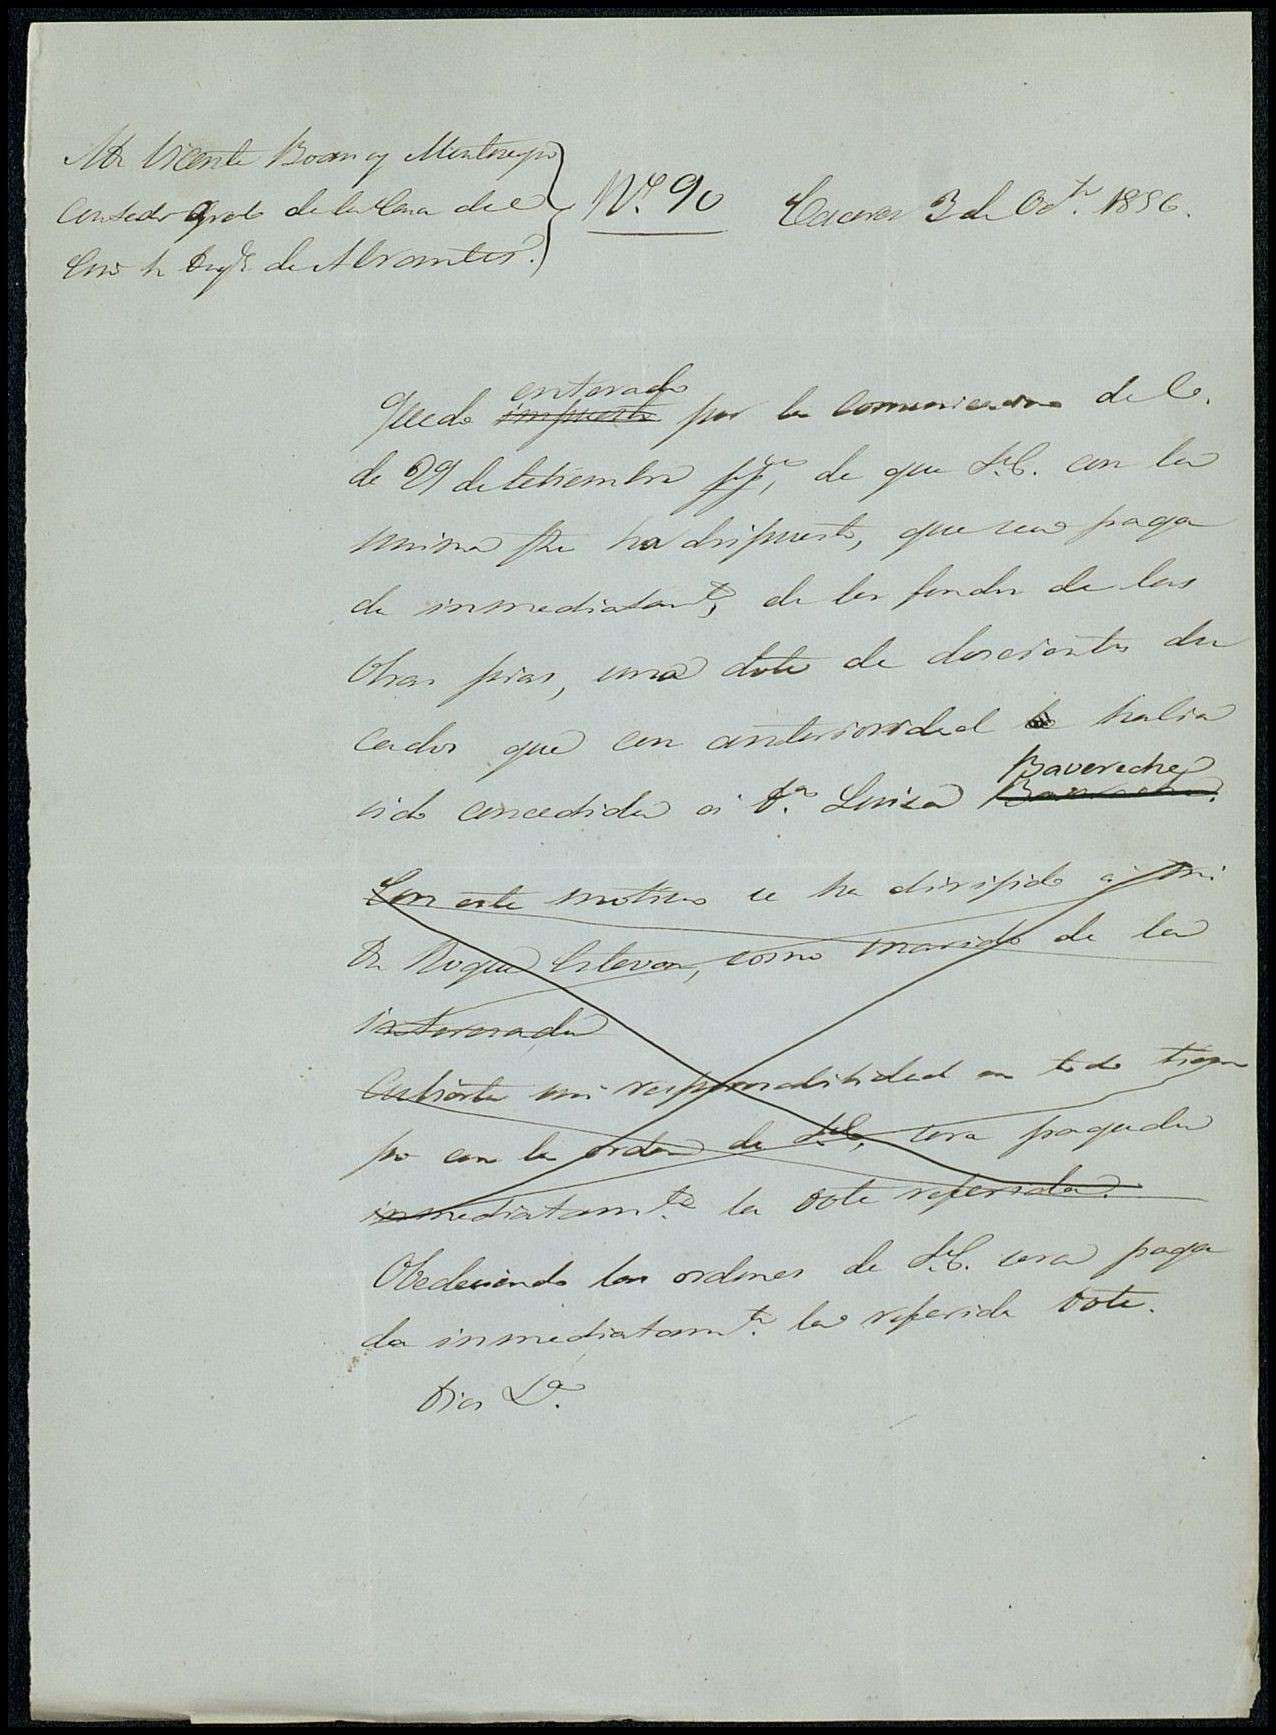 Vicente Boan y Montenegro
Contador Gral de la Casa del
Duq.e de Abrantes.
N.º 90
Caceres 3 de Oct.e 1856.
enterado
Quedo impuesto por la comunicacion de V.
de 29 de Setiembre pp.º, de que S.E. con la
misma fha ha dispuesto, que sea paga
da inmediatam.te, de los fondos de las
Obras pias, una dote de doscientos du
cados que con anterioridad habia
sido concedida á D.ª Luisa Bavereche
Con este motivo se ha dirigido á mi
Dn Roque Estevan, como marido de la
interesada
Cubierta mi responsabilidad en todo tiem
po con la orden de S.E., sera pagada
inmediatam.te la dote referida.
Obedeciendo las ordenes de S.E. sera paga
da inmediatam.te la referida dote.
Dios